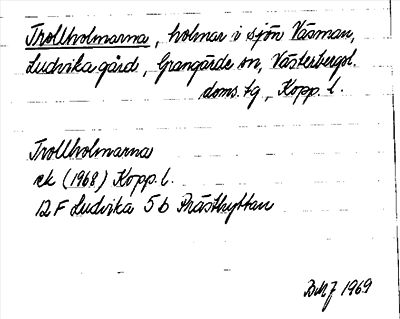 Trollholmarna, holmar i sjön Väsman,
Ludvika gård, Grangärde sn, Västerbergsl.
doms. tg, Kopp. l.
Trollholmarna
ek (1968) Kopp. l.
12 F Ludvika 5 b Prästhyttan
1969